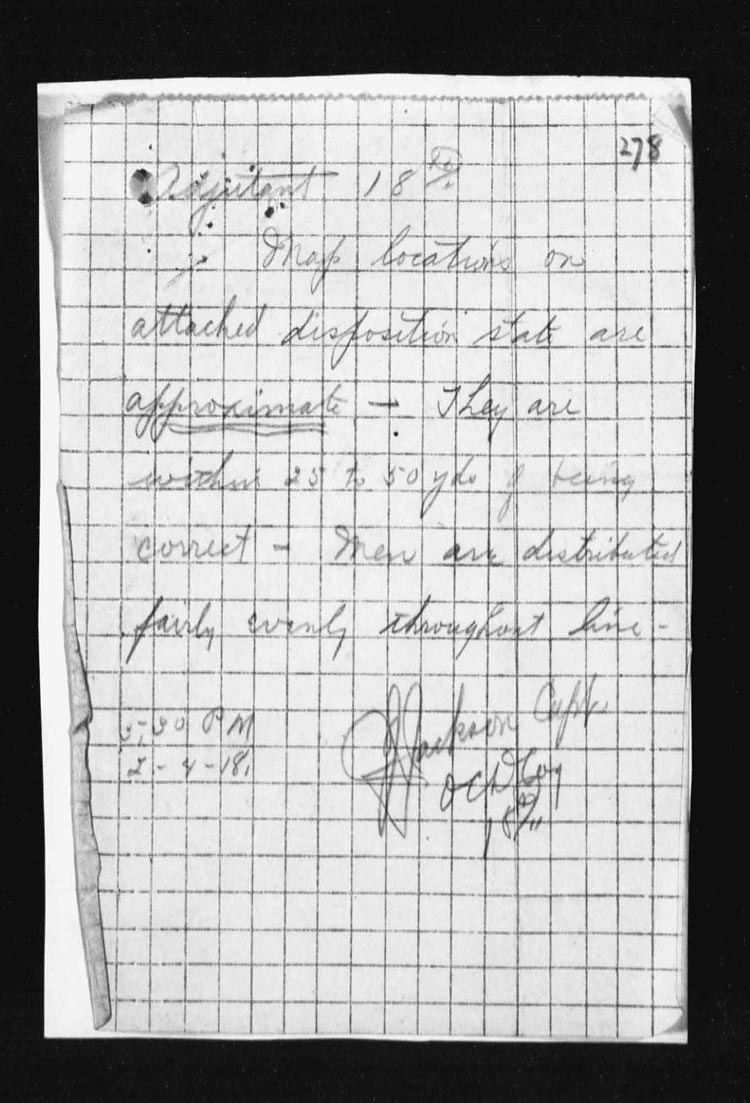 278
Adjutant 18 Bn.
Map locations on
attached disposition state are
approximate - They are
within 25 to 50 yds of being
correct - Men are distributed
fairly evenly throughout line -
5.30 PM
2-4-18.
Jackson Capt.
OC D Coy
18 Bn